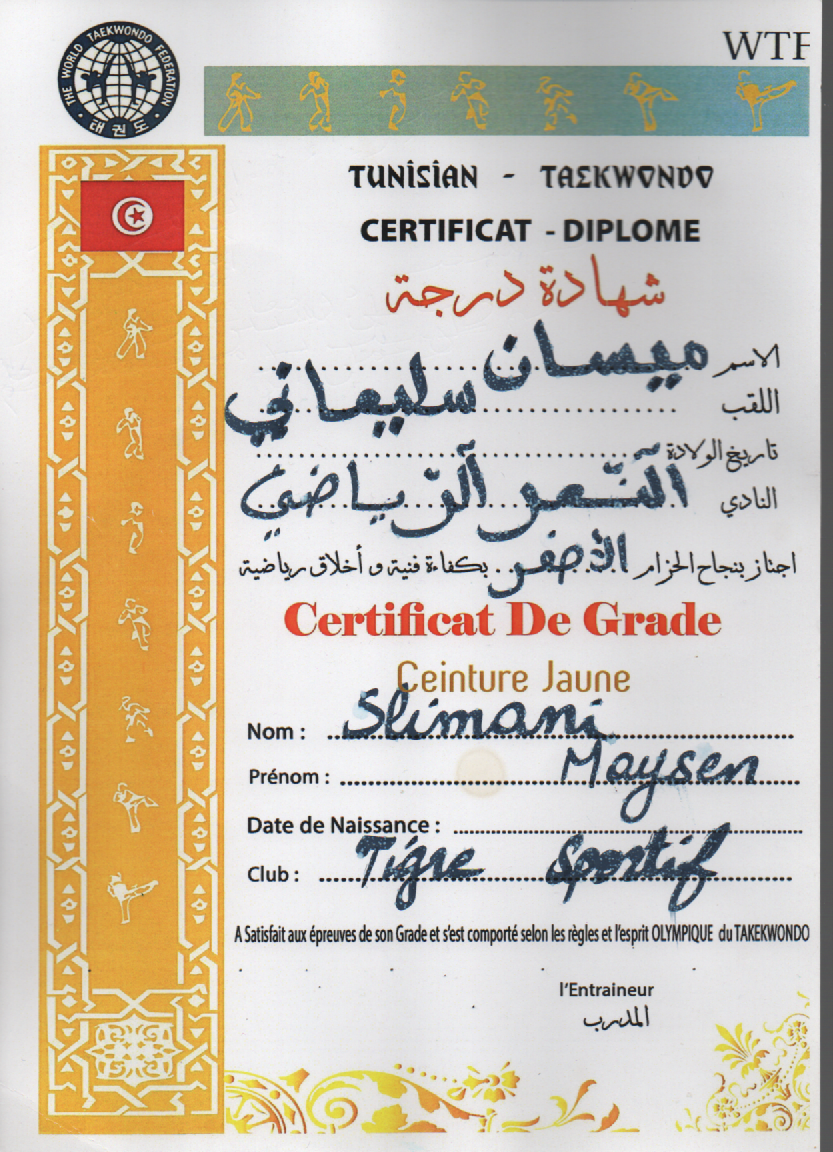 THE WORLD TAEKWONDO FEDERATION
태권도
WTF
TUNISIAN - TAEKWONDO
CERTIFICAT - DIPLOME
شهادة درجة
الاسم ميسان
اللقب سليماني
تاريخ الولادة
النادي النّمر الرّياضي
اجتاز بنجاح الحزام الأصفر بكفاءة فنية و أخلاق رياضية
Certificat De Grade
Ceinture Jaune
Nom : Slimani
Prénom : Maysen
Date de Naissance :
Club : Tigre Sportif
A Satisfait aux épreuves de son Grade et s'est comporté selon les règles et l'esprit OLYMPIQUE du TAKEKWONDO
l'Entraineur
المدرب